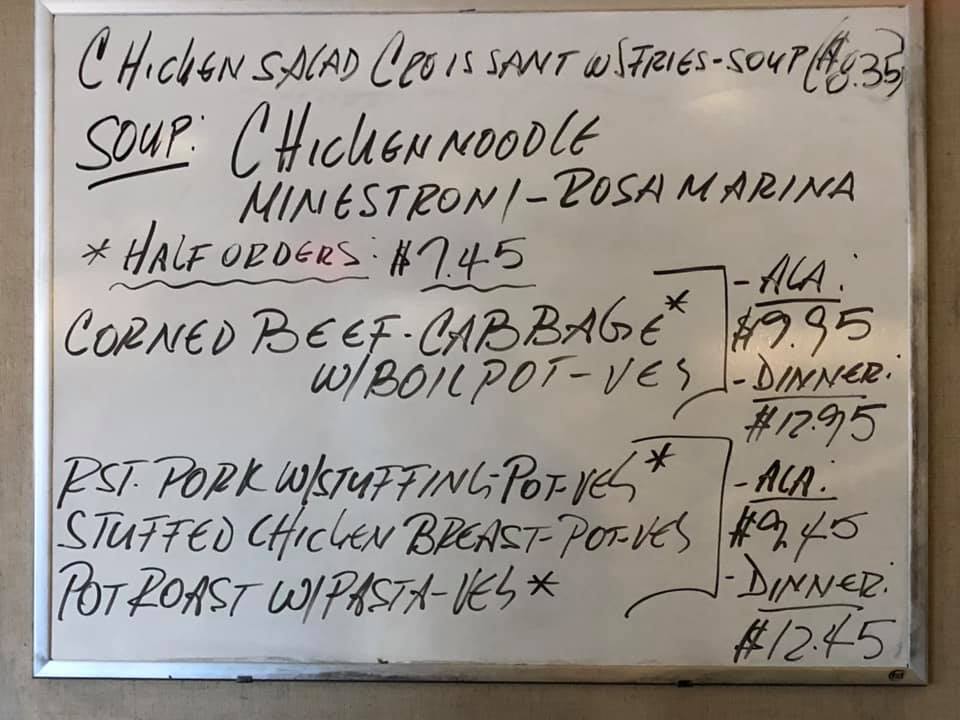 CHICKEN SALAD CROISSANT W/FRIES-SOUP ($8.35)
SOUP: CHICKEN NOODLE
MINESTRONI-ROSAMARINA
* HALF ORDERS: $7.45
CORNED BEEF-CABBAGE*
W/BOIL POT-VEG
-ALA:
$9.95
-DINNER:
$12.95
RST. PORK W/STUFFING-POT-VEG*
STUFFED CHICKEN BREAST-POT-VEG
POT ROAST W/PASTA-VEG*
-ALA:
$9.45
-DINNER:
$12.45